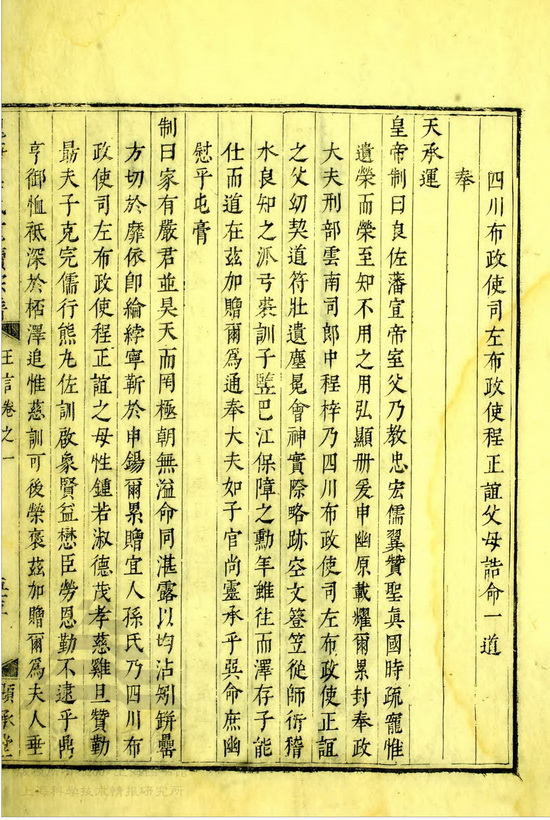 四川布政使司左布政使程正誼父母誥命一道
奉
天承運
皇帝制曰良佐藩宣帝室父乃教忠宏儒翼贊聖眞國時疏寵惟
遺榮而榮至知不用之用弘顯册爰申幽原載耀爾累封奉政
大夫刑部雲南司郎中程梓乃四川布政使司左布政使正誼
之父幼契道符壯遺塵冕會神實際略跡空文簦笠從師衍稽
水良知之派弓裘訓子豎巴江保障之勳年雖往而澤存子能
仕而道在茲加贈爾爲通奉大夫如子官尚靈承乎巽命庶幽
慰乎屯膏
制曰家有嚴君並昊天而罔極朝無溢命同湛露以均沾矧缾罍
方切於靡依卽綸綍寧靳於申錫爾累贈宜人孫氏乃四川布
政使司左布政使程正誼之母性鍾若淑德茂孝慈雞旦贊勤
勗夫子克完儒行熊丸佐訓啟象賢益懋臣勞恩勤不逮乎鼎
亨御恤祗深於桮澤追惟慈訓可後榮褒茲加贈爾爲夫人垂
王言卷之一
顯承堂
上海科学技术情报研究所